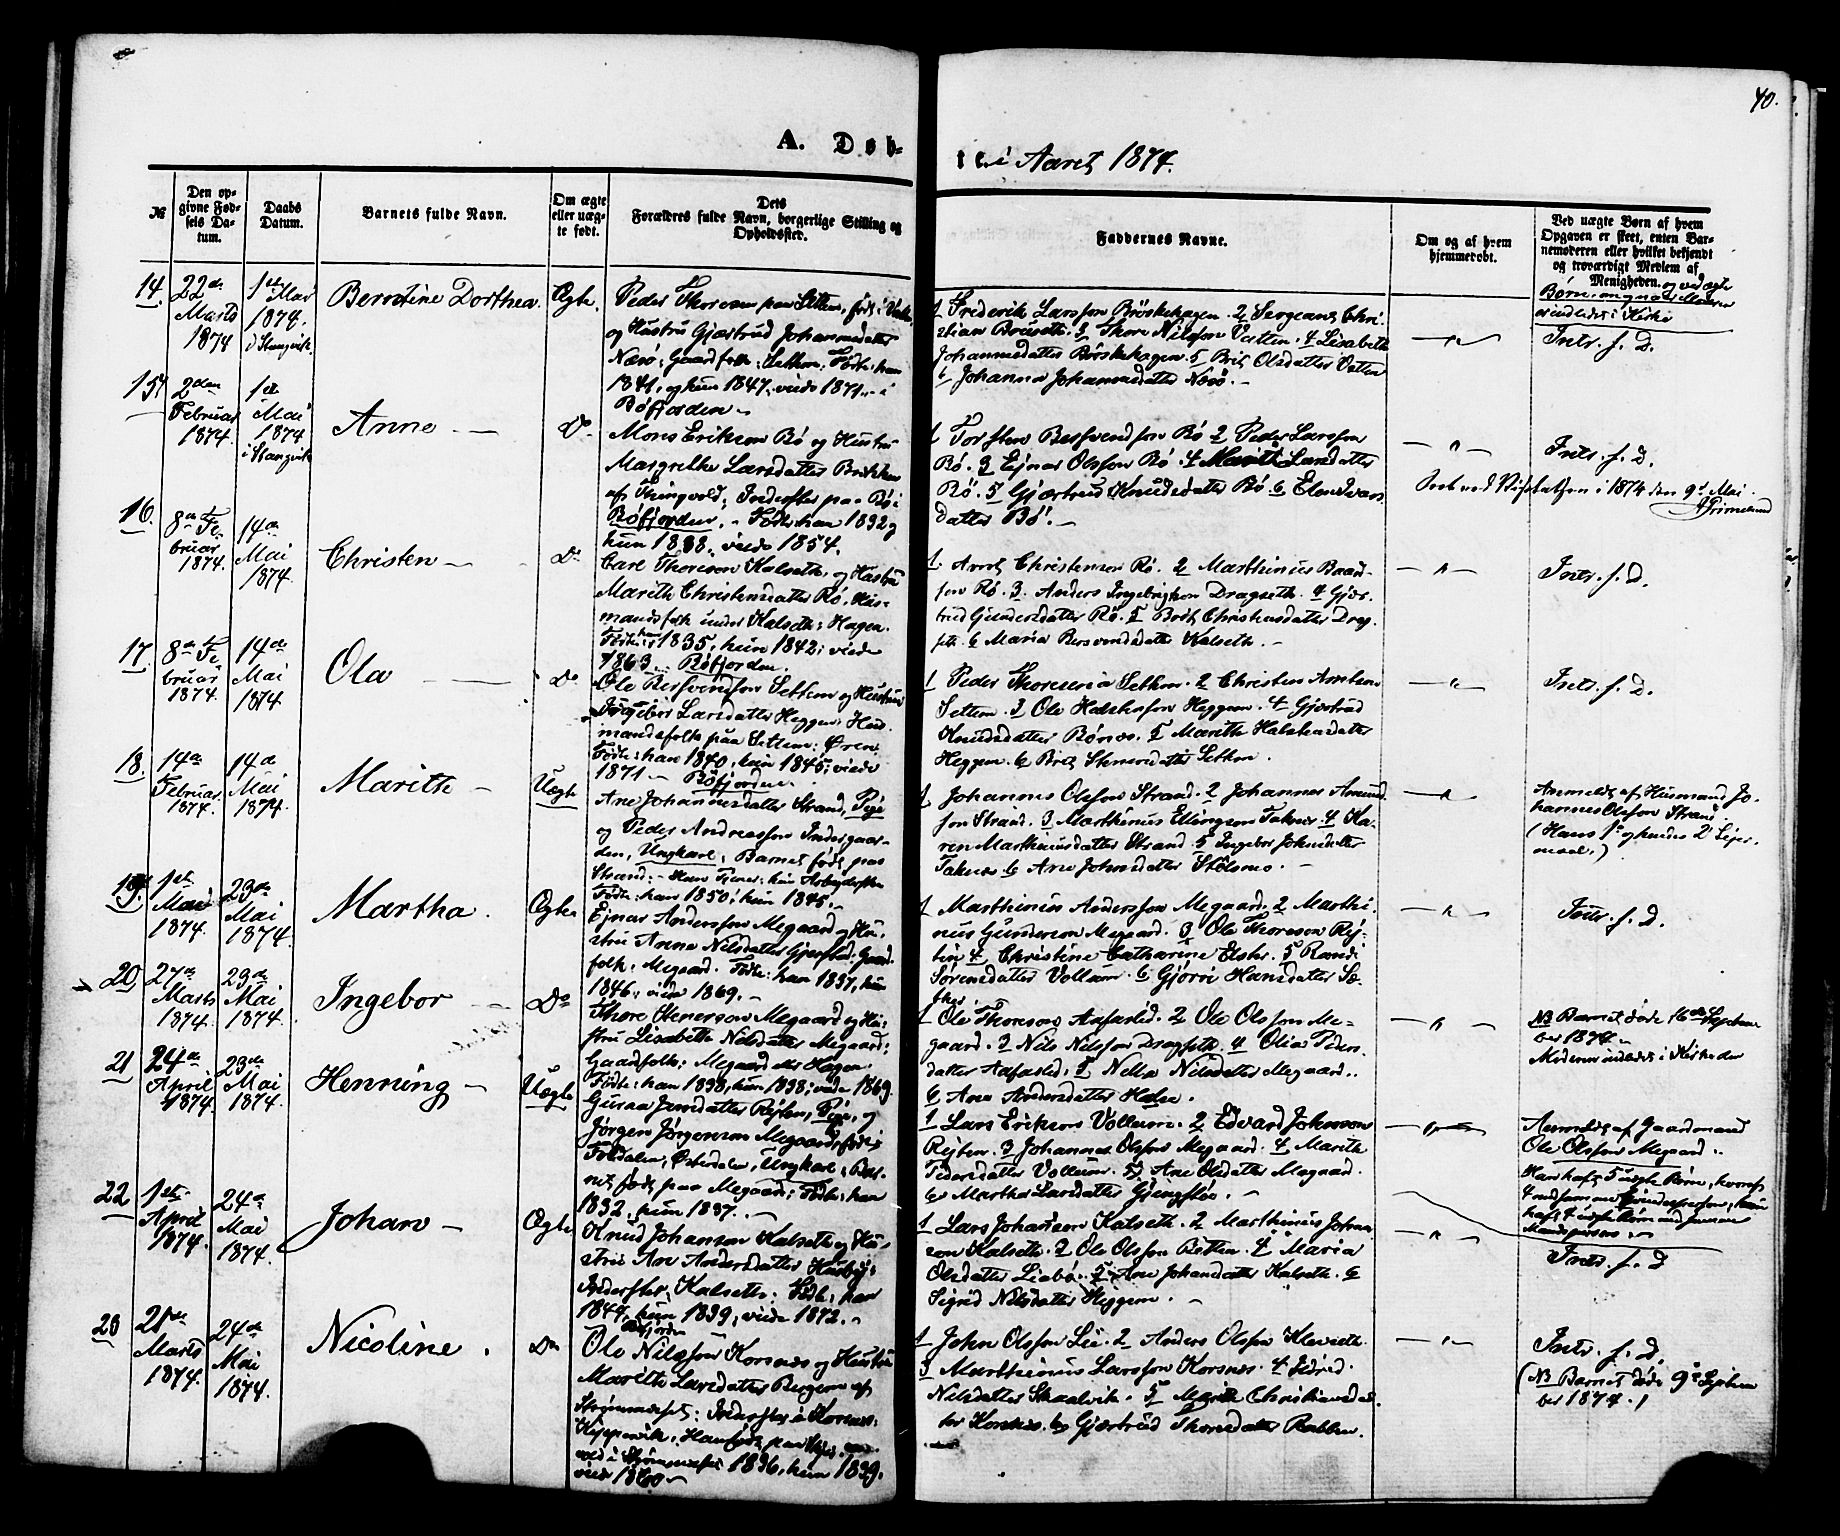 40.
A. Døb-
te i Aaret 1874.
№
Den op-
givne Fød-
sels Da-
tum.
Daabs
Datum.
Barnets fulde Navn.
Om ægte
eller uæg-
te født.
Dets
Forældres fulde Navn, borgerlige Stilling og
Opholdssted.
Faddernes Navne.
Om og af hvem
hjemmedøbt.
Ved uægte Børn af hvem
Opgaven er skeet, enten Bar-
nemoderen eller hvilket bekjendt
og troværdigt Medlem af
Menigheden. og ved ægte
Børn, om og naar Moderen
er indledet i Kirke
14.
22de
Marts
1874
1ste Mai
1874.
i Stangvik
Berntine Dorthea.
Ægte.
Peder Thoresen paa Settem, født i
og Hustru Gjertrud Johannesdatter
Næsø; Gaardfolk; Settem; Født: han
1841, og hun 1847, viede 1871 i
Bøfjorden
1 Frederik Larsson Bøskehagen. 2 Sergeant Chri-
stian Brusett. 3 Thore Nilsson Vatten. 4 Lisabeth
Johannesdatter Bøskehagen. 5 Brit Olsdatter Vatten
6 Johanna Johannesdatter Næsø.
— " —
Intr. f. D.
15.
2den
Februar
1874.
1ste
Mai
1874
i Stangvik
Anne —
Do
Mons Eriksen Bø og Hustru
Margrethe Larsdatter Brekken
af Thingvold; Inderster paa Bø i
Bøfjorden. Født: han 1832 og
hun 1833, viede 1854.
1 Torsten Bersvendsen Bø 2 Peder Larsson
Bø. 3 Ejnar Olsson Bø. 4 Marith Larsdatter
Bø. 5 Gjertrud Knudsdatter Bø 6 Elen Ivars
datter Bø.
— " —
Intr. f. D.
Seet ved Visitatsen i 1874 den 9de Mai
16.
8de Fe-
bruar
1874.
14de
Mai
1874.
Christen —
Do
Carl Thoresen Kalseth, og Hustru
Marith Christensdatter Bø, Hus-
mandsfolk under Kalseth; Hagen.
Født: han 1835, hun 1842; viede
1863. Bøfjorden.
1 Arnt Christensen Bø. 2 Marthinus Baard-
son Bø. 3. Anders Ingebrigtson Dragseth. 4 Gjer-
trud Gundersdatter Bø. 5 Berit Christensdatter Drag-
seth. 6 Maria Bersvendsdatter Kalseth.
— " —
Intr. f. D.
17.
8de Fe-
bruar
1874.
14de
Mai
1874
Ola —
Do
Ole Bersvendsen Settem og Hustru
Ingebor Larsdatter Heggem, Hus-
mandsfolk paa Settem: Øren.
Født: han 1840, hun 1845; viede
1871 — Bøfjorden.
1 Peder Thoresen Settem. 2 Christen Arntsen
Settem. 3 Ole Halstensen Heggem. 4 Gjertrud
Knudsdatter Bønes. 5 Marith Halstensdatter
Heggem. 6 Brit Stenersdatter Settem.
— " —
Intr. f. D.
18.
14de
Februar
1874.
14de
Mai
1874.
Marith —
Uægte
Ane Johannesdatter Strand, Pige
og Peder Andreassen Indergaar-
den, Ungkarl; Barnet født paa
Strand: — Han Tjener; hun Arbejderske
Født: han 1850; hun 1845.
1 Johannes Olsson Strand. 2 Johannes Amund-
son Strand. 3 Marthinus Ellingson Taknes. 4 Ka-
ren Marthinusdatter Strand. 5 Ingebor Johnsdatter
Taknes. 6 Ane Johnsdatter Stølsmo.
— " —
Anmeldt af Husmand Jo-
hannes Olsson Strand
(Hans 1ste og hendes 2det Lejer-
maal.)
19.
1ste
Mai
1874.
23de
Mai
1874
Martha.
Ægte
Ejnar Anderson Megaard og Hu-
stru Anne Nilsdatter Gjersfled; Gaard-
folk; Megaard. Født: han 1837, hun
1846; viede 1869.
1 Marthinus Anderson Megaard. 2 Marthi-
nus Gunderson Megaard. 3 Ole Thoreson Røj-
ten 4 Christine Catharine Elster. 5 Randi
Sørensdatter Vollum. 6 Gjøro Hansdatter Sæ-
ther.
— " —
Intr. f. D.
20
27de
Marts
1874.
23de
Mai
1874.
Ingebor —
Do
Thore Stenerson Megaard og Hu-
stru Lisabeth Nilsdatter Megaard;
Gaardfolk: Megaard als Hagen.
Født: han 1838, hun 1838; viede 1869.
1 Ole Thoresen Aafarlid. 2 Ole Olsson Me-
gaard. 3 Nils Nilsson Dragseth. 4 Olia Peders-
datter Aafarlid. 5 Nella Nilsdatter Megaard.
6 Ane Andersdatter Holm.
— " —
NB Barnet døde 16de Septem
ber 1874.
Moderen indledet i Kirke der
21
24de
April
1874.
23de
Mai
1874.
Henning —
Uægte
Guraa Jonsdatter Røjten, Pige, og
Jørgen Jørgensen Megaard, født i
Foldalen, Østerdalen, Ungkarl; Bar-
net født paa Megaard; Født: han
1832, hun 1837.
1 Lars Eriksen Vollum. 2 Edvard Johnson
Røjten. 3 Johannes Olsson Megaard. 4 Marith
Pedersdatter Vollum. 5 Ane Olsdatter Megaard.
6 Martha Larsdatter Gjengstøe.
— " —
Anmeldt af Gaardmand
Ole Olsson Megaard.
Han havt 5 uægte Børn, hvoraf
4 med samme Qvindesperson; hun
havt 4 uægte Børn med samme
Mandsperson.
22
1ste
April
1874.
24de
Mai
1874.
Johan —
Ægte
Knud Johanson Kalseth og Hu-
stru Ane Andersdatter Husby;
Inderster; Kalseth. Født: han
1847, hun 1839; viede 1872.
Bøfjorden
1 Lars Johansen Kalseth. 2 Marthinus Johan-
son Kalseth. 3 Ole Olsson Betten. 4 Maria
Olsdatter Liabø. 5 Ane Johansdatter Kalseth. 6
Sigrid Nilsdatter Heggem.
— " —
Intr. f. D
23
21de
Marts
1874.
24de
Mai
1874.
Nicoline.
Do
Ole Nilsson Korsnes og Hustru
Marith Larsdatter Bergem af
Strømsneset; Inderster i Korsnes:
1836, hun 1839.
viede 1860
1 John Olsson Lie. 2 Anders Olsson Kleveth.
3 Marthinus Larsson Korsnes. 4 Idrid
Nilsdatter Skaalvik. 5 Marit Christiansdat-
ter Korsnes. 6 Gjertrud Thoresdatter Rabben.
— " —
Intr. f. D.
(NB Barnet døde 9de Septem
ber 1874.)